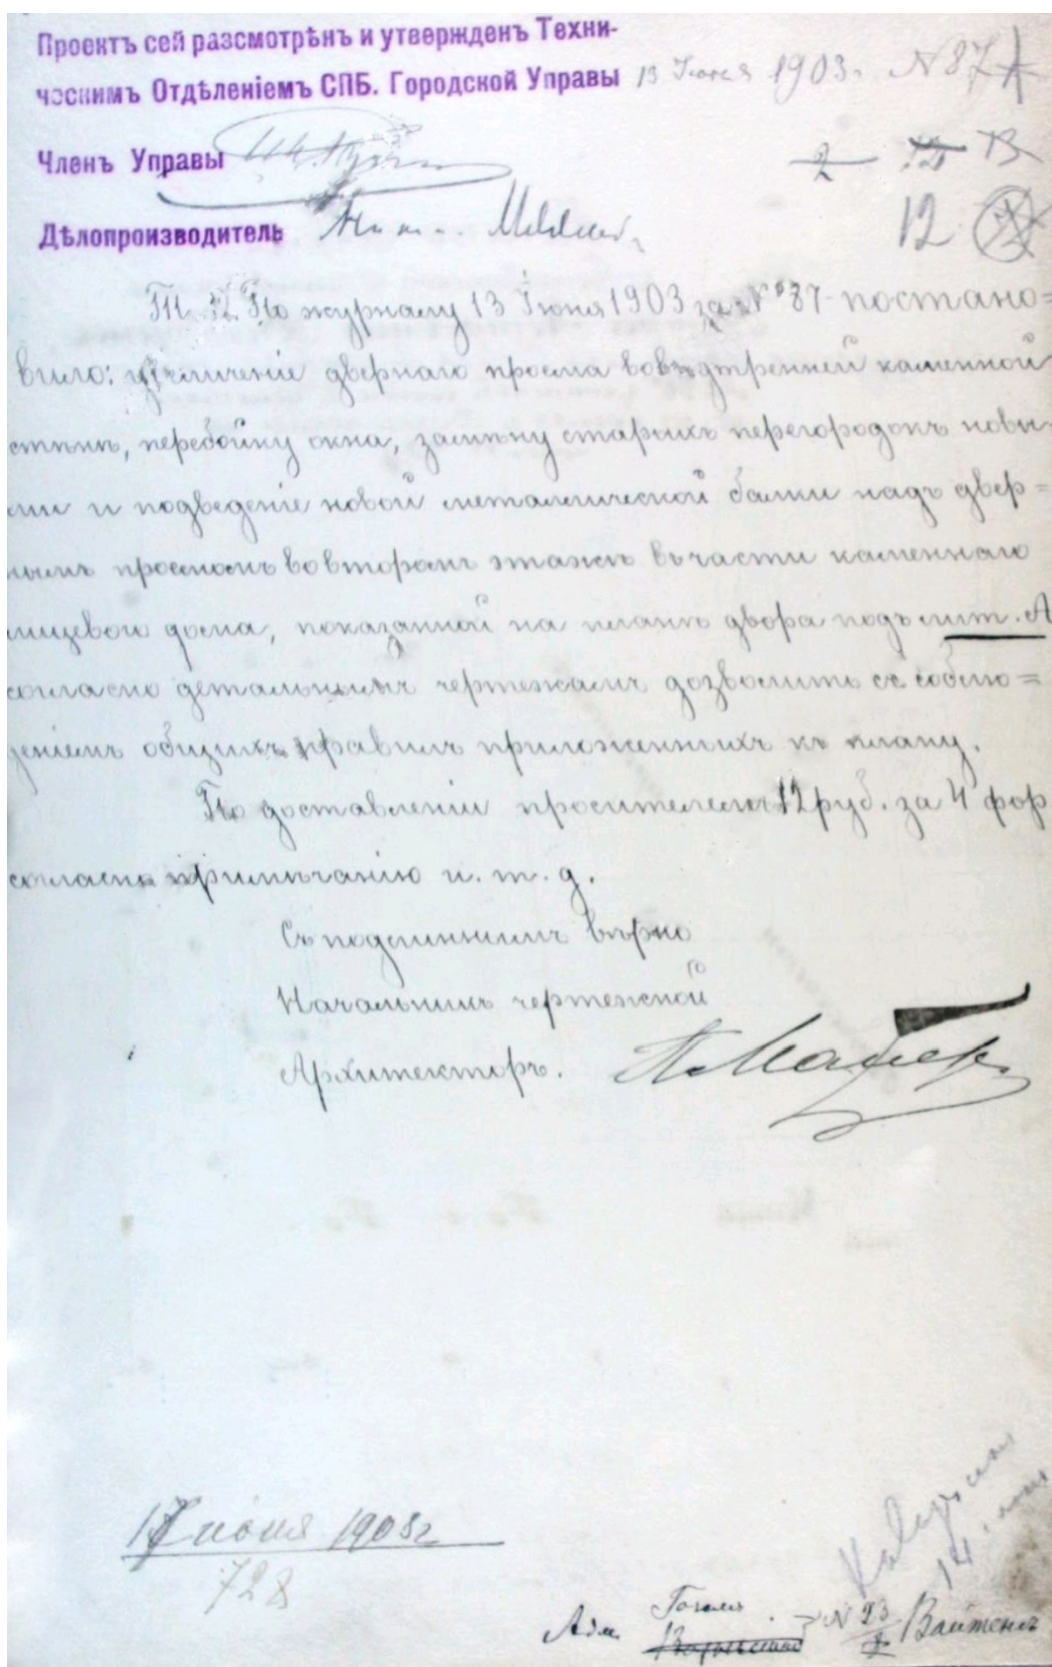 Проектъ сей разсмотрѣнъ и утвержденъ Техни-
ческимъ Отдѣленіемъ СПБ. Городской Управы 13 Іюня 1903 г. N 87
Членъ Управы
2 13
Дѣлопроизводитель
12
По журналу 13 Іюня 1903 за № 87 постано=
вило: увеличеніе дверного проема во внутренней каменной
стѣнѣ, перебойку окна, замѣну старыхъ перегородокъ новы-
ми и подведеніе новой металлической балки надъ двер=
нымъ проемомъ во второмъ этажѣ въ части каменнаго
лицевого дома, показанной на планѣ двора подъ лит. А
согласно детальнымъ чертежамъ дозволить съ соблю=
деніемъ общихъ правилъ приложенныхъ къ плану.
По доставленіи просителемъ 12 руб. за 4 фор
согласно примѣчанію и. т. д.
Съ подлиннымъ вѣрно
Начальникъ чертежной
Архитекторъ.
17 іюня 1903 г
728
Гоголя
Адм. N 23 Вайтенсъ